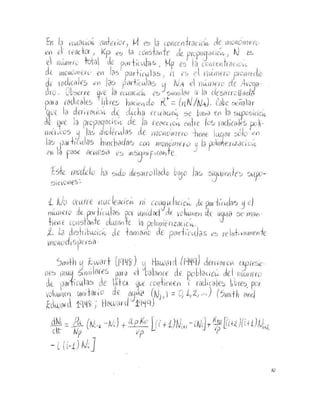 En la ecuación anterior, M es la concentración de monómero
en el reactor, Kp es la constante de propagación, N es
el número total de partículas, Mp es la concentración
de monómero en las partículas, n es el número promedio
de radicales en las partículas y NA el número de Avoga-
dro. Observe que la ecuación es similar a la desarrollada
para radicales libres haciendo R* = (nN/NA). Cabe señalar
que la derivación de dicha ecuación se basa en la suposición
de que la propagación de la reacción entre los radicales poli-
méricos y las moléculas de monómero tiene lugar sólo en
las partículas hinchadas con monómero y la polimerización
en la fase acuosa es insignificante.
Este modelo ha sido desarrollado bajo las siguientes supo-
siciones:
1. No ocurre nucleación ni coagulación de partículas y el
número de partículas por unidad de volumen de agua se man-
tiene constante durante la polimerización.
2. La distribución de tamaño de partículas es relativamente
monodispersa
Smith y Ewart (1948) y Haward (1949) derivaron expresio-
nes muy similares para el balance de población del número
de partículas de látex que contienen i radicales libres por
volumen unitario de agua (Ni, i = 0, 1, 2, ...) (Smith and
Edward 1948; Haward 1949)
dNi/dt = (Ni-1 - Ni) + [(i+1)Ni+1 - iNi] + [(i+2)(i+1)Ni+2
- i(i-1)Ni]